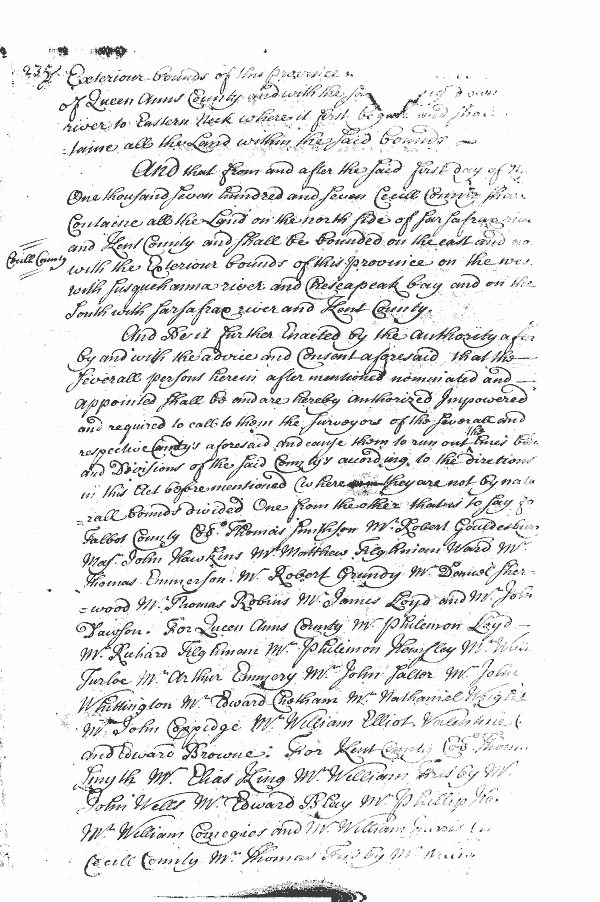 235
Exteriour bounds of this province
of Queen Anns County and with the
river to Eastern Neck where it first began and shall
taine all the Land within the said bounds
And that from and after the said first day of
One thousand seven hundred and seven Cecill County shall
Containe all the Land on the north side of Sassafrax
and Kent County and shall be bounded on the east and
Cecill County
with the Exteriour bounds of this Province on the
with Susquehanna river and Cheseapeak bay and on the
South with Sassafrax river and Kent County.
And Be it further Enacted by the authority
by and with the advice and Consent aforesaid that the
severall persons herein after mentioned nominated and
appointed shall be and are hereby authorized Impowered
and required to call to them the surveyors of the severall and
respective County's aforesaid and cause them to run out the lines
and Divisions of the said County's according to the directions
in this Act before mentioned (where they are not by
rall bounds divided One from the other that is to say
Talbot County Thomas Smithson Mr. Robert
Maj. John Hawkins Mr. Matthew Tilghman Ward Mr.
Thomas Emmerson Mr. Robert Grundy Mr. Daniel Sher-
=wood Mr. Thomas Robins Mr. James Loyd and Mr. John
Dawson. For Queen Anns County Mr. Philemon Loyd
Mr. Richard Tilghman Mr. Philemon Mr.
Mr. Arthur Emmery Mr. John Salter Mr. John
Whittington Mr. Edward Chetham Mr. Nathaniel
Mr. John Coppidge Mr. William Elliot Valentine
and Edward Browne: For Kent County
Smyth Mr. Elias King Mr. William Mr.
John Wells Mr. Edward Blay Mr. Phillip
Mr. William Comegies and Mr. William
Cecill County Mr. Thomas